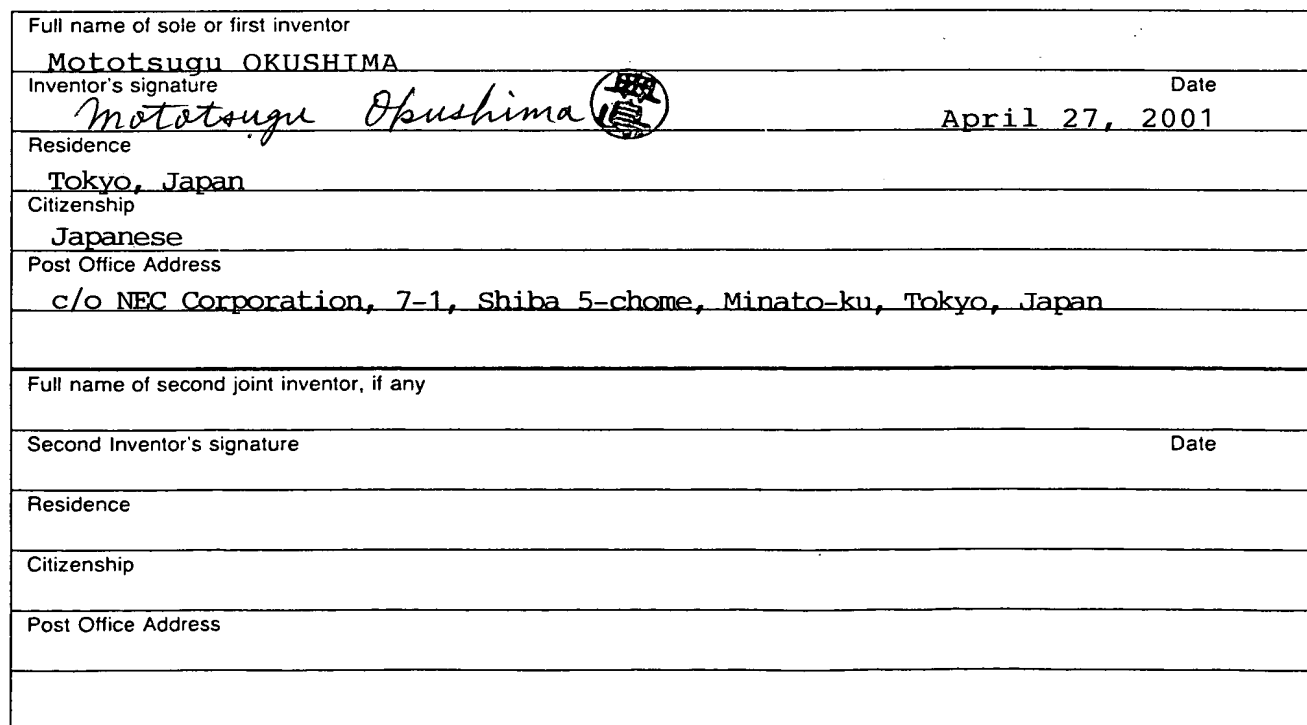 Full name of sole or first inventor
Mototsugu OKUSHIMA
Inventor's signature
Date
Mototsugu Okushima
April 27, 2001
Residence
Tokyo, Japan
Citizenship
Japanese
Post Office Address
c/o NEC Corporation, 7-1, Shiba 5-chome, Minato-ku, Tokyo, Japan
Full name of second joint inventor, if any
Second Inventor's signature
Date
Residence
Citizenship
Post Office Address